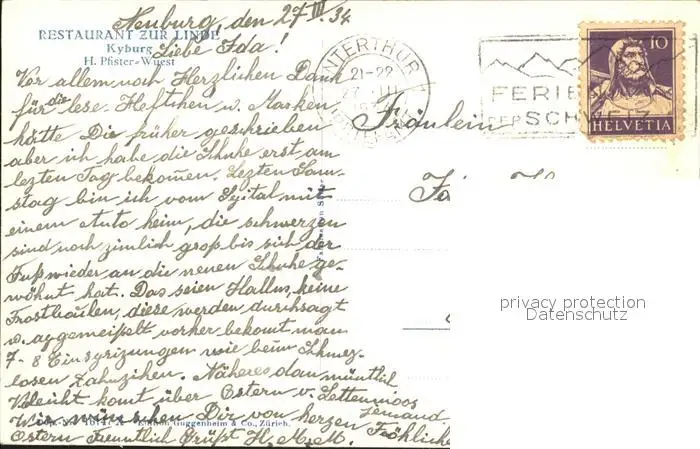 Neuburg, den 27 III 34
RESTAURANT ZUR LINDE
Kyburg
H. Pfister-Wuest
Liebe Ida!
Vor allem noch Herzlichen Dank
für die lese. Heftchen u. Marken
hätte Dir früher geschrieben
aber ich habe die Schuhe erst am
lezten Tag bekommen. Lezten Sam-
stag bin ich vom Spital mit
einem Auto heim, die schmerzen
sind noch zimlich groß bis sich der
Fuß wieder an die neuen Schuhe ge-
wöhnt hat. Das seien Hallus, keine
Frostbäulen, diese werden durchsägt
u. abgemeißelt vorher bekomt man
7-8 Einsprizungen wie beim Schmerz-
losen Zahnziehen. Näheres dan müntlich
Vileicht komt über Ostern v. Lettenmoos
jemand.
Wir wünschen Dir von herzen Fröhliche
Ostern Freuntlich Grüßt H. M. M.
16147 Edition Guggenheim & Co., Zürich.
WINTERTHUR
21-22
27. III
FERIEN
DER SCHWEIZ
10
HELVETIA
Fräulein
privacy protection
Datenschutz